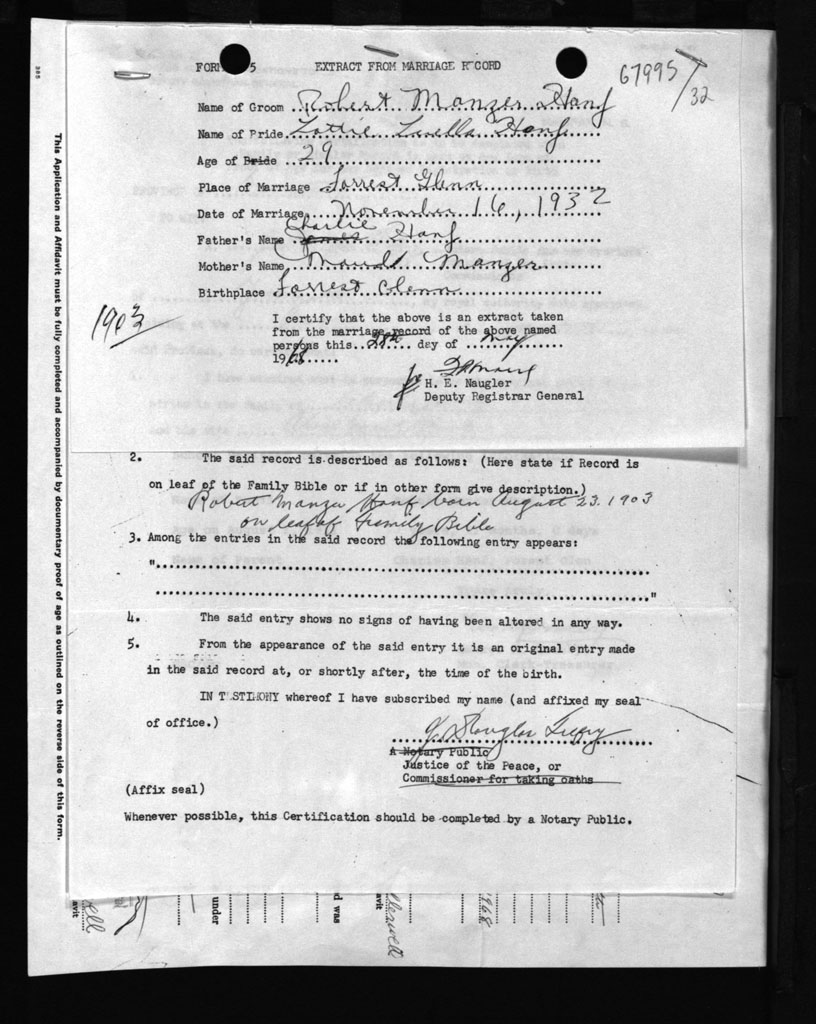 5
EXTRACT FROM MARRIAGE RECORD
67995/32
Name of Groom Robert Manzer Hanf
Name of Bride Lottie Luella Hanf
Age of Bride 29
Place of Marriage Forrest Glenn
Date of Marriage November 16, 1932
Father's Name James Charlie Hanf
Mother's Name Maud Manzer
Birthplace Forrest Glenn
1903
I certify that the above is an extract taken
from the marriage record of the above named
persons this 28th day of May
1968
for
H. E. Naugler
Deputy Registrar General
2. The said record is described as follows: (Here state if Record is
on leaf of the Family Bible or if in other form give description.)
Robert Manzer Hanf born August 23. 1903
on leaf of Family Bible
3. Among the entries in the said record the following entry appears:
"
"
4. The said entry shows no signs of having been altered in any way.
5. From the appearance of the said entry it is an original entry made
in the said record at, or shortly after, the time of the birth.
IN TESTIMONY whereof I have subscribed my name (and affixed my seal
of office.)
A Notary Public
Justice of the Peace, or
Commissioner for taking oaths
(Affix seal)
Whenever possible, this Certification should be completed by a Notary Public.
This Application and Affidavit must be fully completed and accompanied by documentary proof of age as outlined on the reverse side of this form.
under
d was
avit
1968